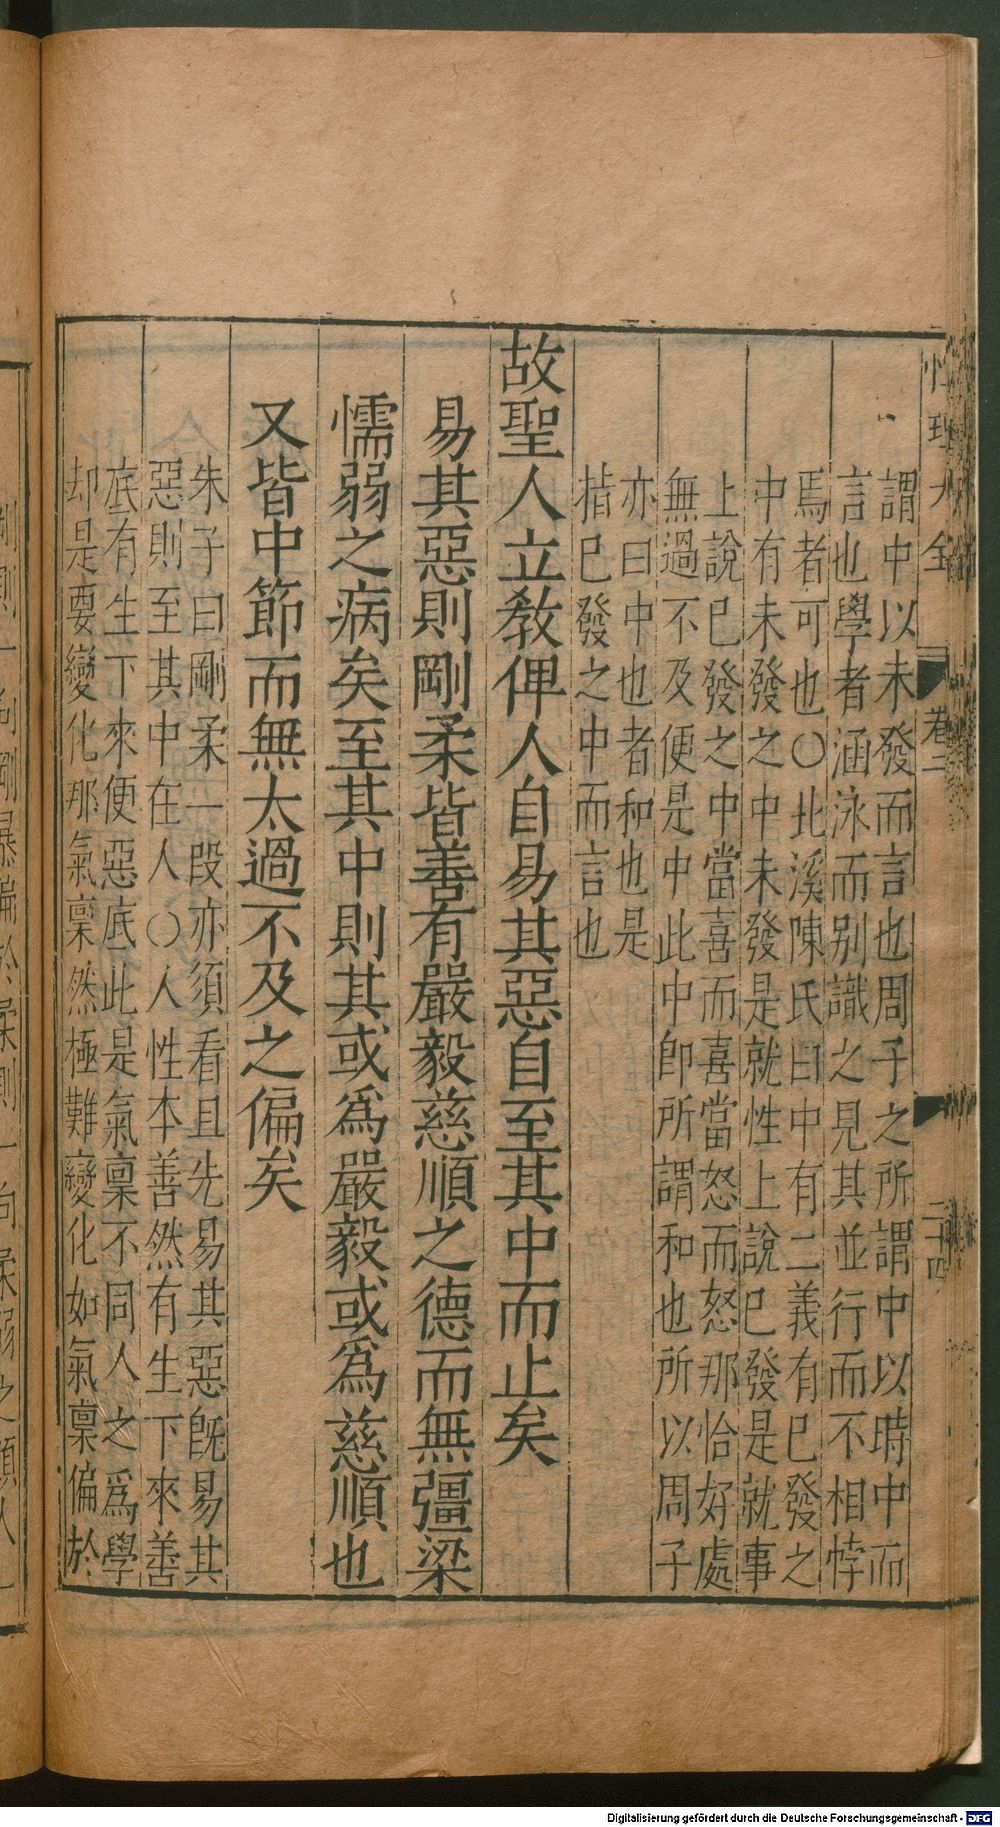 性理大全
卷二
二十四
謂中以未發而言也周子之所謂中以時中而
言也學者涵泳而别識之見其並行而不相悖
焉者可也○北溪陳氏曰中有二義有已發之
中有未發之中未發是就性上說已發是就事
上說已發之中當喜而喜當怒而怒那恰好處
無過不及便是中此中卽所謂和也所以周子
亦曰中也者和也是
指已發之中而言也
故聖人立敎俾人自易其惡自至其中而止矣
易其惡則剛柔皆善有嚴毅慈順之德而無彊梁
懦弱之病矣至其中則其或爲嚴毅或爲慈順也
又皆中節而無太過不及之偏矣
朱子曰剛柔一段亦須看且先易其惡旣易其
惡則至其中在人○人性本善然有生下來善
底有生下來便惡底此是氣稟不同人之爲學
却是要變化那氣稟然極難變化如氣稟偏於
Digitalisierung gefördert durch die Deutsche Forschungsgemeinschaft - DFG